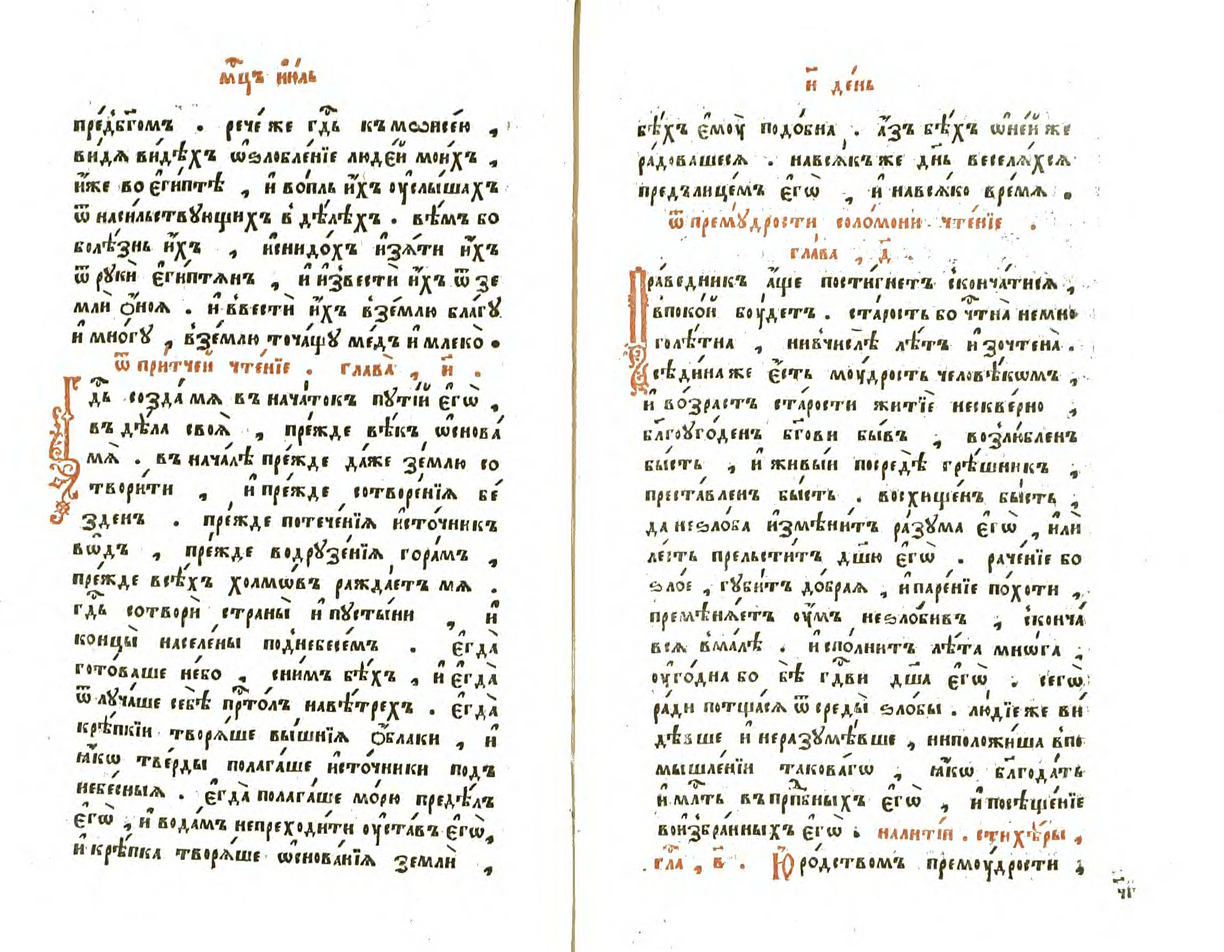 мⷭ҇цъ і҆ю́ль
пре́дбг҃омъ . рече́ же гдⷭ҇ь къ мѡѷсе́ю ,
ви́дѧ ви́дѣхъ ѡ҆ѕлобле́нїе люде́й мои́хъ ,
и҆́же во є҆гѵ́птѣ , и҆ во́пль и҆́хъ ᲂу҆слы́шахъ
ѿ наси́льствующихъ в дѣ́лѣхъ . вѣ́мъ бо
болѣ́знь и҆́хъ , и҆снидо́хъ и҆зѧ́ти и҆́хъ
ѿ руки́ є҆гѵ́птѧнъ , и҆ и҆звести́ и҆́хъ ѿ зе
мли́ ѻ҆́ноѧ . и҆ ввести́ и҆́хъ взе́млю бла́гу
и҆ мно́гу , взе́млю точа́щу ме́дъ и҆ млеко̀ .
ѿ при́тчей чте́нїе . глава̀ , и҃ .
Гдⷭ҇ь созда́ мѧ въ нача́токъ пꙋті́й є҆гѡ̀ ,
въ дѣ́ла своѧ̀ , пре́жде вѣ́къ ѡ҆снова́
мѧ̀ . въ нача́лѣ пре́жде да́же зе́млю со
твори́ти , и҆ пре́жде сотворе́нїѧ бе́
зденъ . пре́жде потече́нїѧ и҆сто́чникъ
во́дъ , пре́жде водруже́нїѧ гора́мъ ,
пре́жде всѣ́хъ хо́лмѡвъ ражда́етъ мѧ .
гдⷭ҇ь сотворѝ страны̀ и҆ пусты́ни , и҆
концы̀ населе́ны поднебесе́мъ . є҆гда̀
гото́ваше не́бо , сни́мъ бѣ́хъ , и҆ є҆гда̀
ѿлуча́ше себѣ̀ прⷭ҇то́лъ навѣ́трехъ . є҆гда̀
крѣ́пкїи творѧ́ше вы́шнїѧ ѻ҆́блаки , и҆
ꙗ҆́кѡ тве́рды полага́ше и҆сто́чники подъ
небе́сныѧ . є҆гда̀ полага́ше мо́рю предѣ́лъ
є҆гѡ̀ , и҆ вода́мъ непреходи́ти ᲂу҆ста́въ є҆гѡ̀,
и҆ крѣ́пка творѧ́ше ѡ҆снова́нїѧ землѝ ,
и҃ де́нь
бѣ́хъ є҆моу̀ подо́бна . а҆́зъ бѣ́хъ ѡ҆не́йже
ра́довашесѧ . навсѧ́къ же дн҃ь веселѧ́хсѧ
предълице́мъ є҆гѡ̀ , и҆ навсѧ́ко вре́мѧ .
ѿ прему́дрости соломони чте́нїе .
глава̀ , д҃ .
Пра́ведникъ а҆́ще пости́гнетъ скончáтисѧ ,
впоко́й боу́детъ . ста́рость бо чⷭ҇тна̀ немно
голѣ́тна , нивчислѣ̀ лѣ́тъ и҆зочтена̀ .
сѣди́на же є҆́сть моу́дрость человѣ́кѡмъ ,
и҆ во́зрастъ ста́рости житїѐ нескве́рно ,
бл҃гоуго́денъ бг҃ови бы́въ , возлю́бленъ
бы́сть , и҆ живы́й посредѣ̀ грѣ́шникъ ,
преста́вленъ бы́сть . восхище́нъ бы́сть ,
да неѕло́ба и҆змѣни́тъ ра́зума є҆гѡ̀ , и҆лѝ
ле́сть прельсти́тъ дш҃ю є҆гѡ̀ . раче́нїе бо
ѕло́е , губи́тъ до́браѧ , и҆паре́нїе по́хоти ,
премѣнѧ́етъ ᲂу҆́мъ неѕло́бивъ , сконча́
всѧ вма́лѣ . и҆спо́лнитъ лѣ́та мнѡ́га ,
ᲂу҆го́дна бо бѣ̀ гдⷭ҇ви дш҃а̀ є҆гѡ̀ . сегѡ̀
ра́ди потща́сѧ ѿ среды̀ ѕло́бы . лю́дїе же ви́
дѣвше и҆ неразумѣ́вше , ниположи́ша впо
мышле́нїи таково́агѡ , ꙗ҆́кѡ бл҃года́ть
и҆ млⷭ҇ть въ прпⷣбныхъ є҆гѡ̀ , и҆ посѣще́нїе
воизбра́нныхъ є҆гѡ̀ . налитїи . стихѣ́ры ,
гла́ , в҃ . Ю҆ро́дствомъ премоу́дрости ,
чі҃